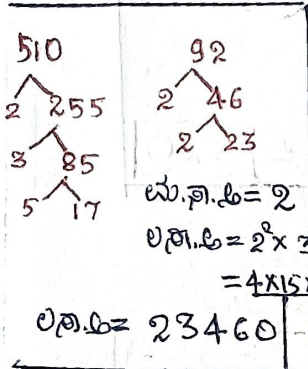 510
2 255
3 85
5 17
92
2 46
2 23
ಮ.ಸಾ.ಅ = 2
ಲ.ಸಾ.ಅ = 2² × 3
= 4 × 15 ×
ಲ.ಸಾ.ಅ = 23460